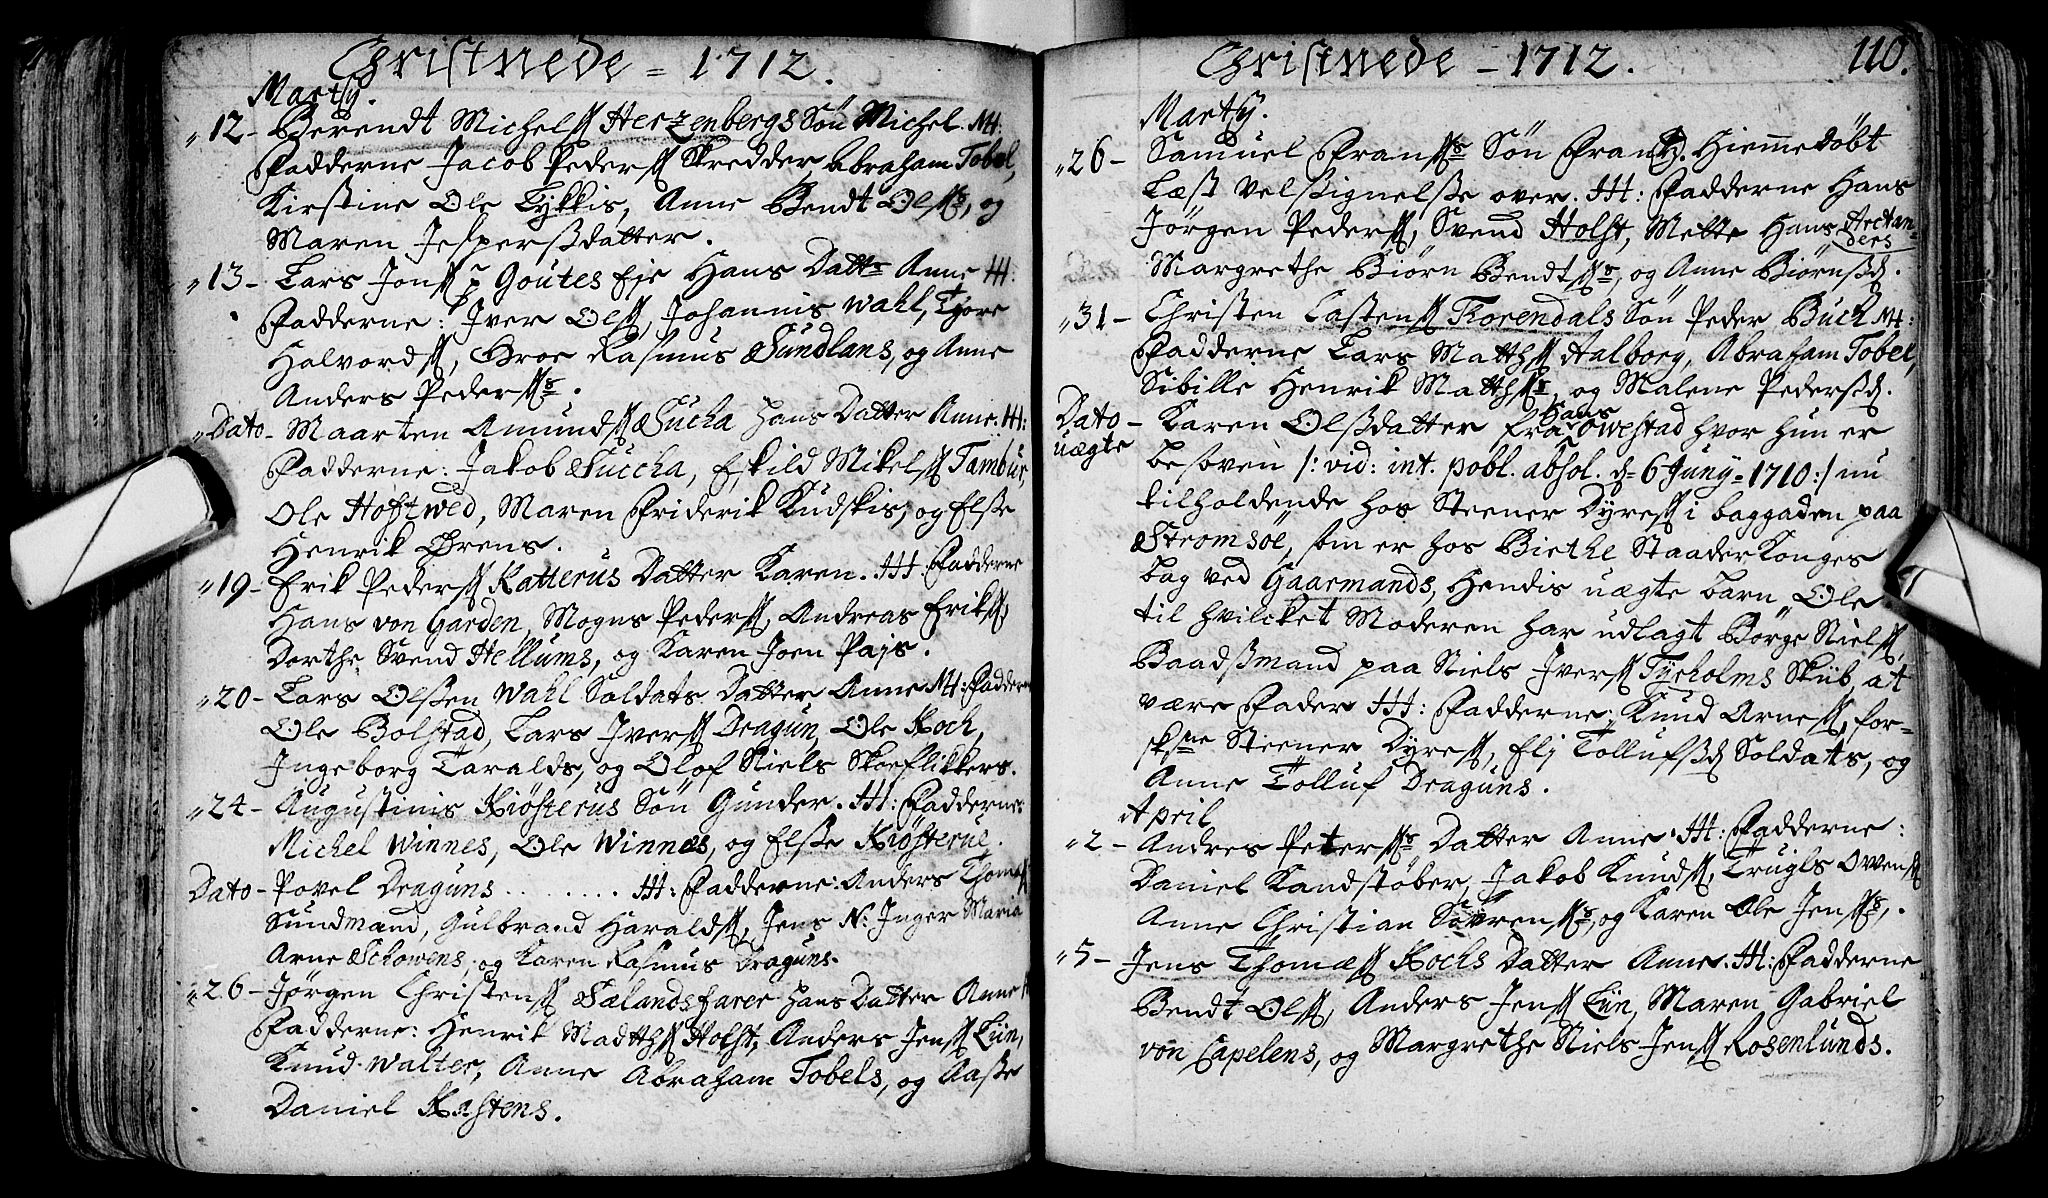 Christnede = 1712.
Martÿ.
"12 - Berendt Michelss Herzenbergs Søn Michel. M:
Fadderne Jacob Pederss Skredder, Abraham Tobel,
Kirstine Ole Lykkis, Anne Bendt Olss, og
Maren Jespersdatter.
"13 - Lars Jonss Goutes Eje Hans Dattr Anne H:
Fadderne: Iver Olss, Johannis Wahl, Tyore
Halvordss, Broe Rasmus Sundlans, og Anne
Anders Pederss.
"Dato - Maarten Amundss Sucha Hans Datter Anne. H:
Fadderne: Jakob Succha, Eskild Mikelss Tambur,
Ole Hoftwed, Maren Friderik Kudskis, og Elsse
Henrik Ørens.
"19 - Erik Pederss Katterus Datter Karen. H: Fadderne
Hans von Garden, Mogns Pederss, Andreas Erikss,
Dorthe Svend Hellums, og Karen Joen Pajs.
"20 - Lars Olssen Wahl Soldats Datter Anne M: Faddern
Ole Bolstad, Lars Iverss Dragun, Ole Koch,
Ingeborg Taralds, og Olof Niels Skoeflikkers.
"24 - Augustinis Kiösterus Søn Gunder. H: Fadderne
Michel Winnes, Ole Winnes, og Elsse Kiösterue.
Dato - Povel Draguns ....... H: Fadderne: Anders Thomæss
Sundmand, Gulbrand Haraldss, Jens N: Inger Maria
Arne Schowens, og Karen Rasmus Draguns.
"26 - Jørgen Christenss Sælandsfarer Hans Datter Anne
Fadderne: Henrik Madtthss Holst, Anders Jenss Liin,
Knud Walter, Anne Abraham Tobels, og Aasse
Daniel Kastens.
Christnede - 1712.
110.
Martÿ.
"26 - Samuel Franss Søn Frantz. Hiemedöbt
Læst Velsignelsse over. H: Fadderne Hans
Jørgen Pederss, Svend Holst, Mette Hans Arctan
ders
Margrethe Biørn Bendtss, og Anne Biørnsd.
"31 - Christen Castenss Thorendals Søn Peder Buch M:
Fadderne Lars Matthss Aalborg, Abraham Tobel,
Sibille Henrik Matthss og Malene Pedersd.
Dato - Karen Olsdatter fra Hans Owestad hvor hun er
uægte
besoven /: vid: int. pobl. absol. d. 6 Juny = 1710 :/ nu
tilholdende hos Steener Dyress i baggaden paa
Stromsöe, som er hos Birthe Staader Konges
bag ved Gaarmands, Hendis uægte barn Ole
til hvilcket Moderen har udlagt Börge Nielss,
Baadssmand paa Niels Iverss Tyrholms Skib at
være Fader H: Fadderne: Knud Arness, for-
skne Steener Dyress, Eli Tollufsd Soldats, og
Anne Tolluf Draguns.
April
"2 - Andres Peterss Datter Anne. H: Fadderne:
Daniel Kandstöber, Jakob Knudss, Trugls Owenss
Anne Christian Sörenss, og Karen Ole Jenss,.
"5 - Jens Thomæss Kochs Datter Anne. H: Fadderne
Bendt Olss, Anders Jenss Liin, Maren Gabriel
von Capelens, og Margrethe Niels Jenss Rosenlunds.